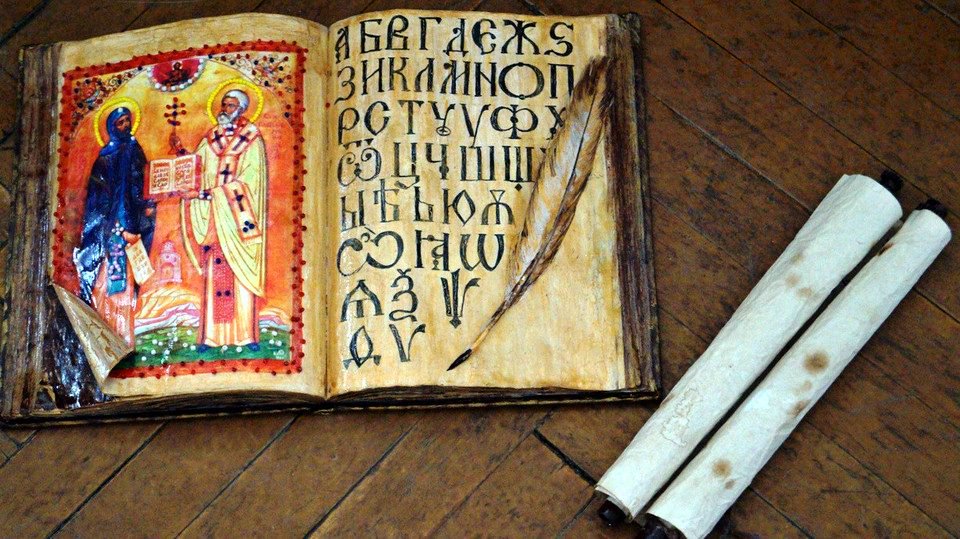 А Б В Г Д Е Ж Ѕ
З И К Л М Н О П
Р С Т Ꙋ У Ф Х
Ѡ Ц Ч Ш Щ
Ы Ѣ Ь Ю Ѫ
Ѽ Ꙗ Ѡ
Ѧ Ѯ Ѱ
Ѳ Ѵ